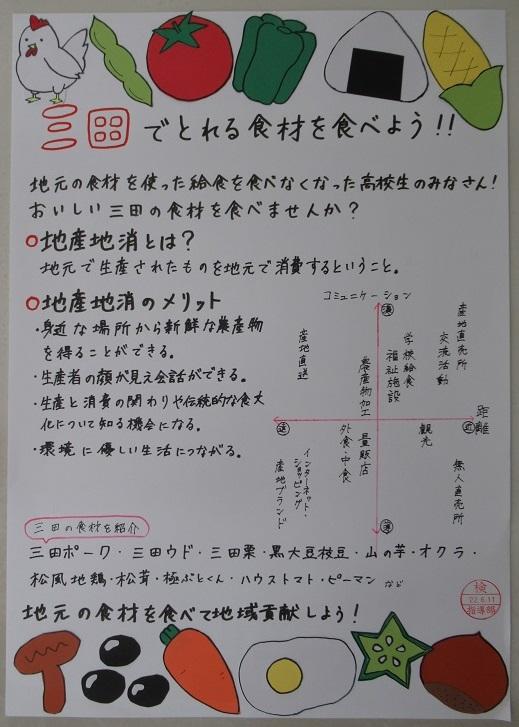 三田でとれる食材を食べよう!!
地元の食材を使った給食を食べなくなった高校生のみなさん!
おいしい三田の食材を食べませんか?
地産地消とは?
地元で生産されたものを地元で消費するということ。
地産地消のメリット
・身近な場所から新鮮な農産物
を得ることができる。
・生産者の顔が見え会話ができる。
・生産と消費の関わりや伝統的な食文
化について知る機会になる。
・環境に優しい生活につながる。
コミュニケーション
濃
産地直売所
交流活動
学校給食
福祉施設
農産物加工
産地直送
遠
近
距離
観光
無人直売所
量販店
外食・中食
インターネット・
ショッピング
産地ブランド
薄
三田の食材を紹介
三田ポーク・三田ウド・三田栗・黒大豆枝豆・山の芋・オクラ・
松風地鶏・松茸・極ぶとくん・ハウストマト・ピーマン など
地元の食材を食べて地域貢献しよう!
検
22.6.11
指導部